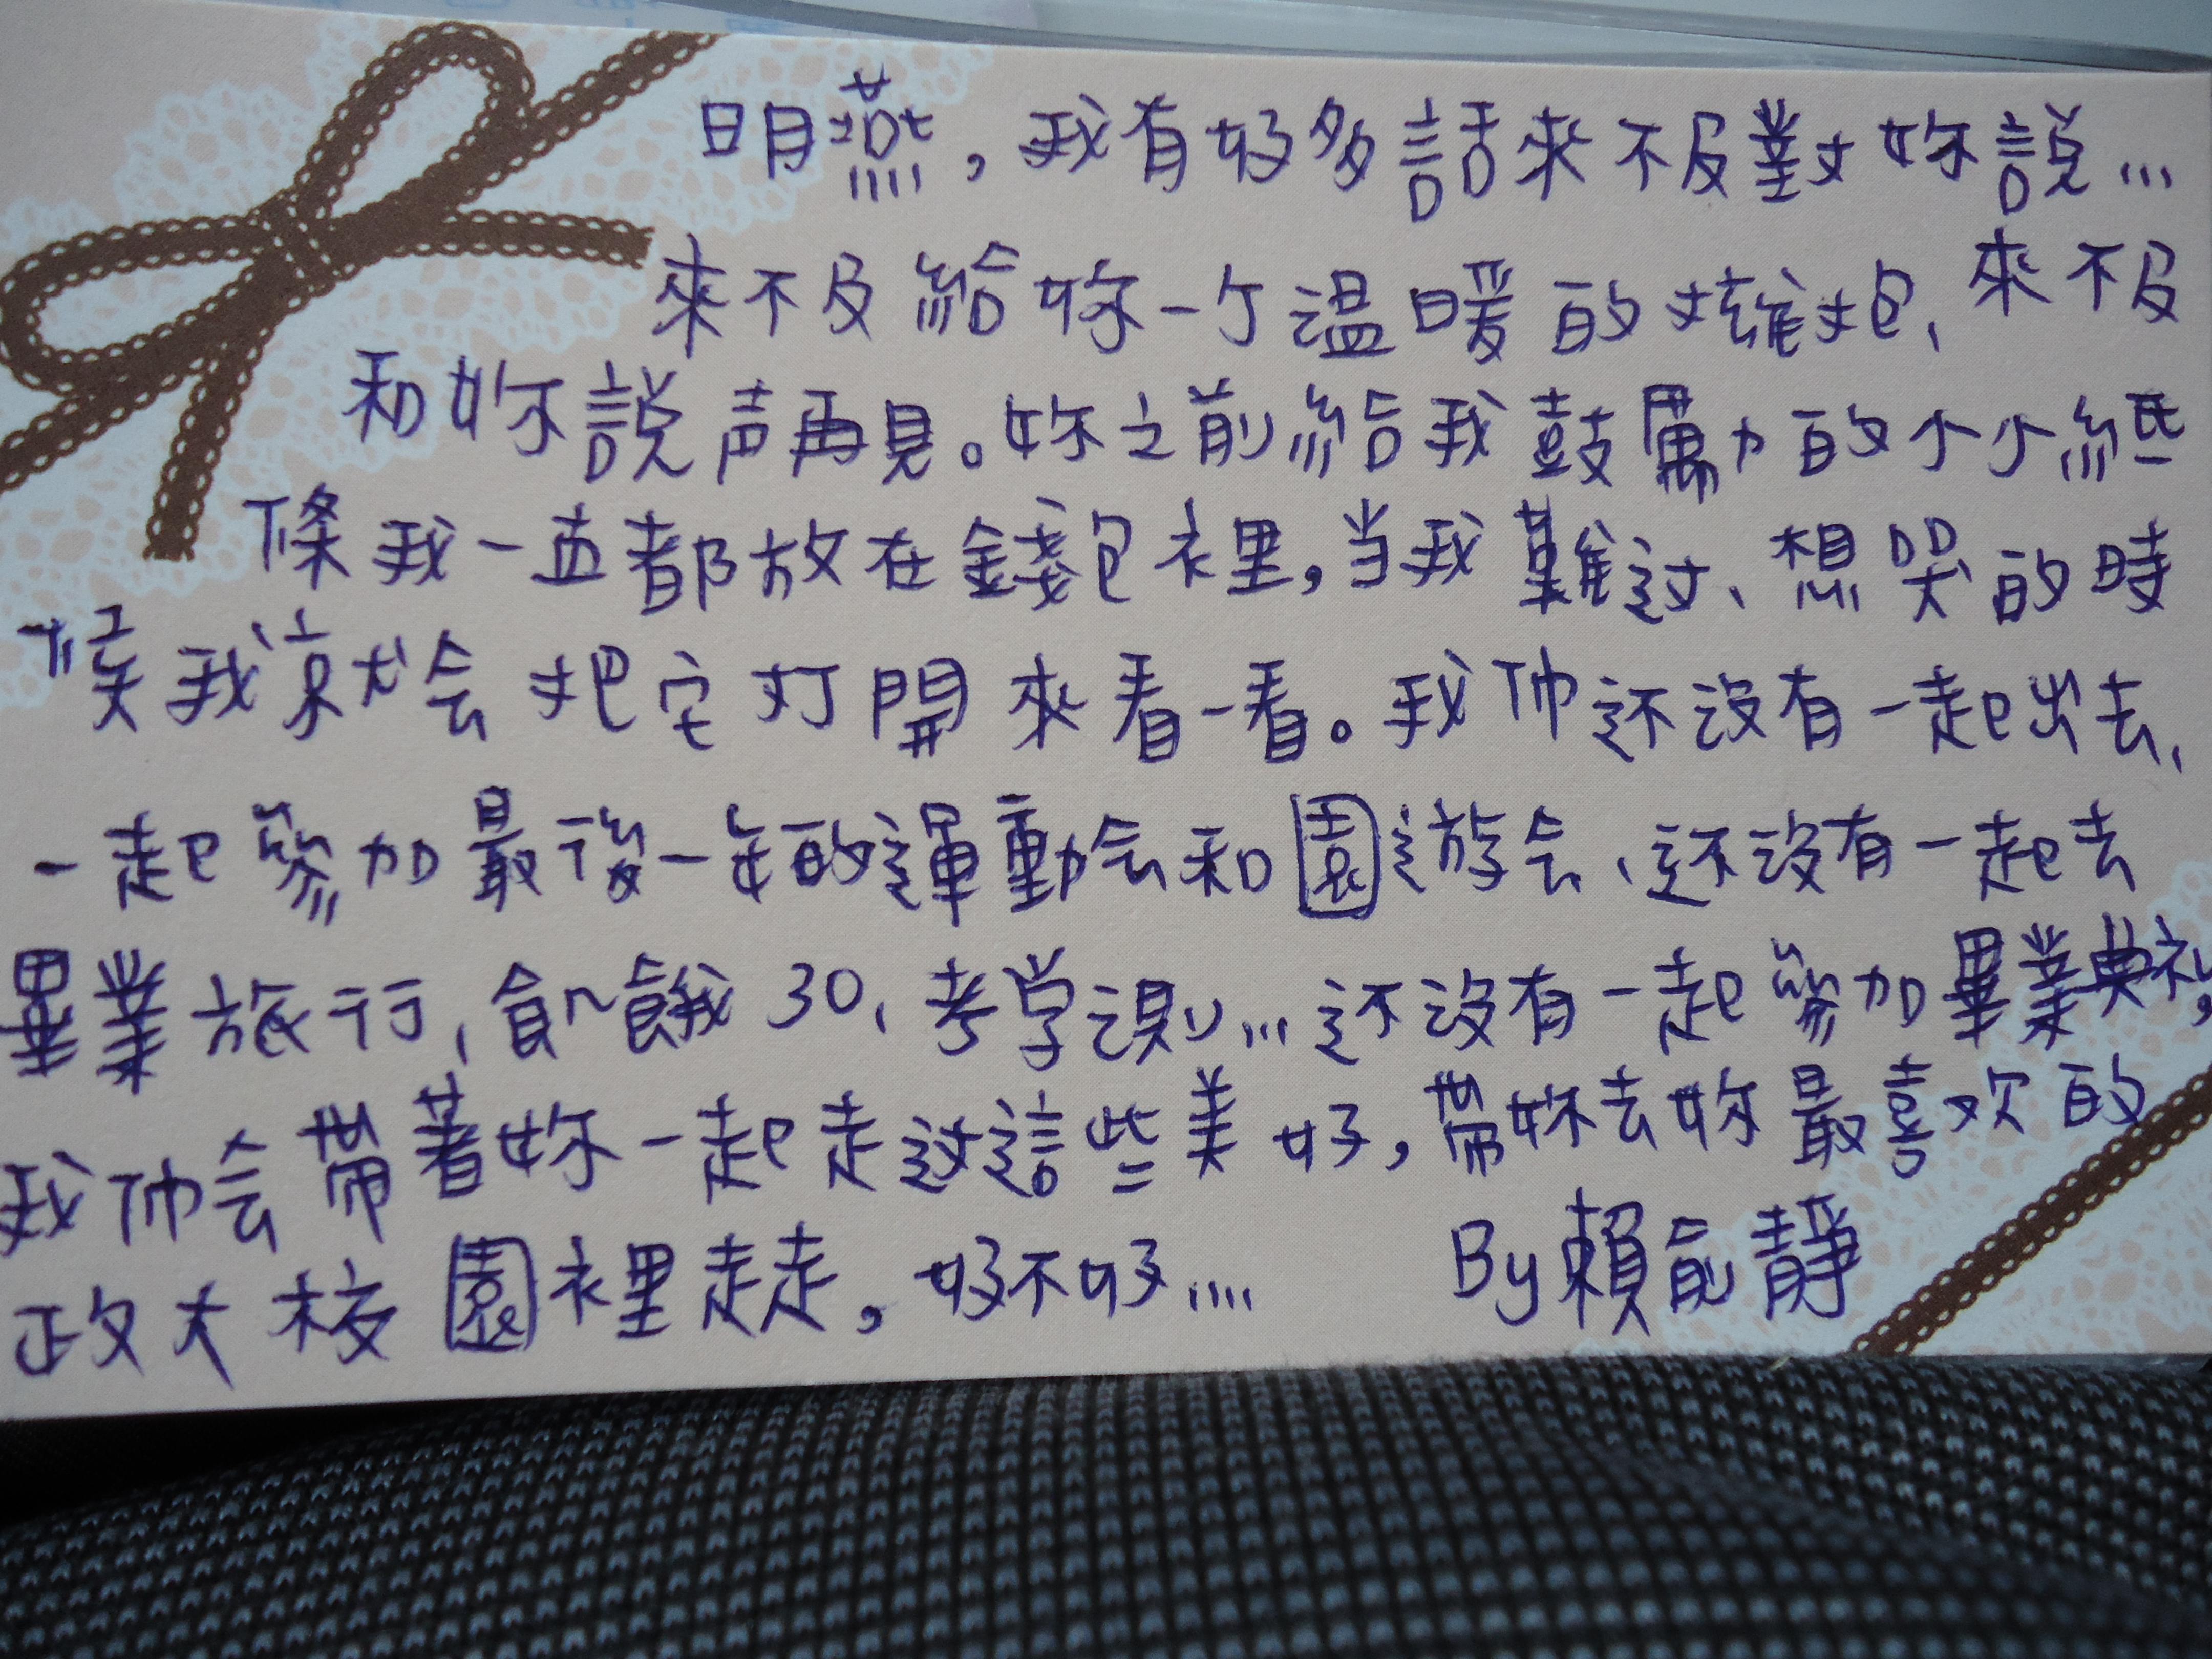 明燕，我有好多話來不及對妳說…
來不及給妳一个溫暖的擁抱、來不及
和妳說声再見。妳之前給我鼓勵的小小紙
條我一直都放在錢包裡，当我難过、想哭的時
候我就会把它打開來看一看。我們还沒有一起出去、
一起參加最後一年的運動会和園遊会、还沒有一起去
畢業旅行、飢餓30、考学測…还沒有一起參加畢業典礼，
我們会帶著妳一起走过這些美好，帶妳去妳最喜欢的
政大校園裡走走，好不好…. By賴俞靜